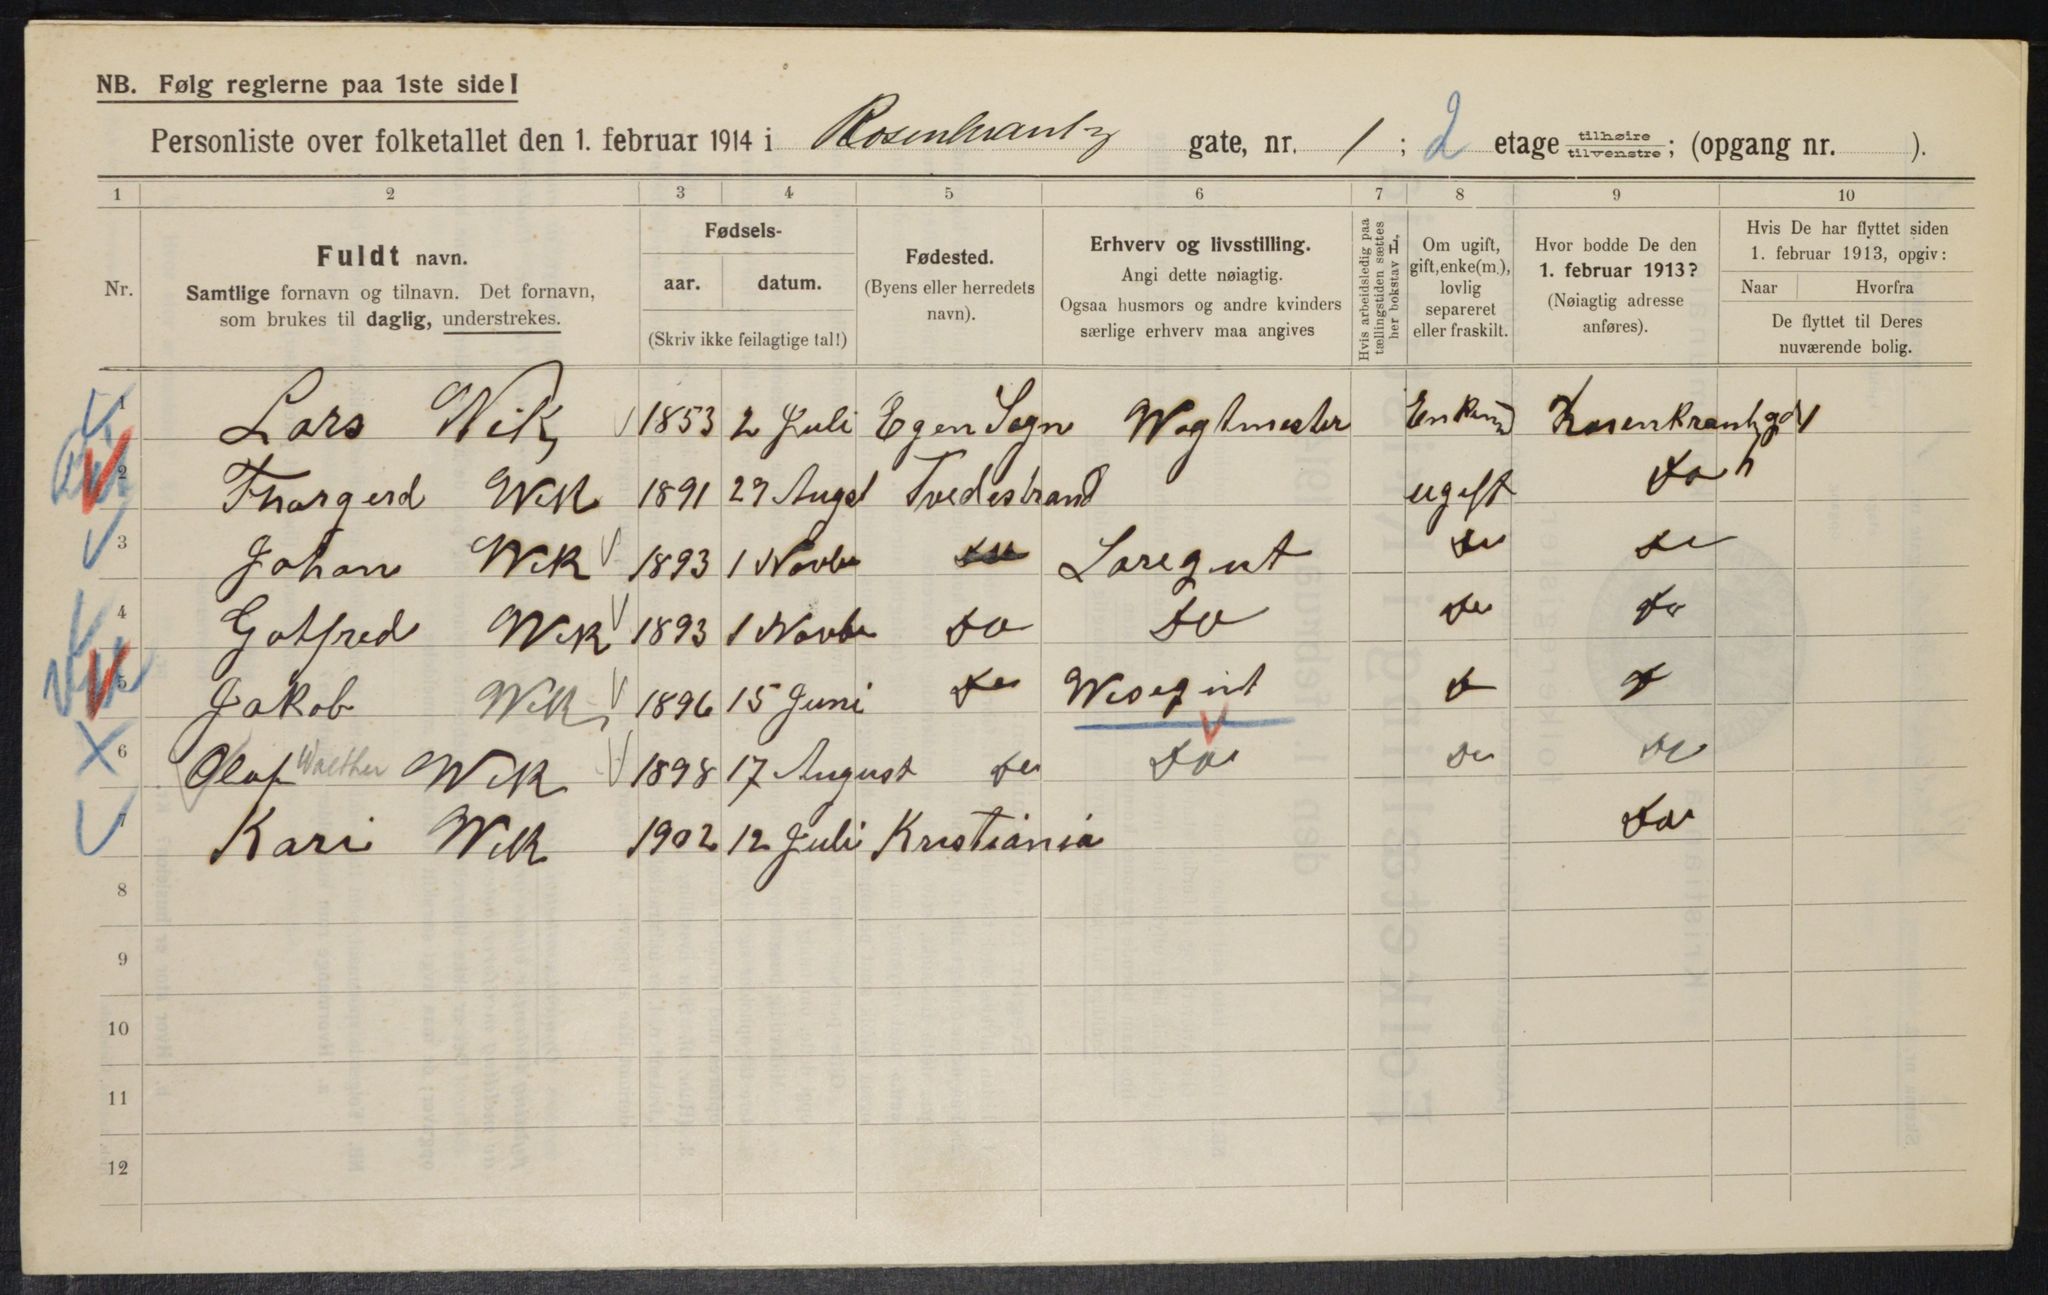 NB. Følg reglerne paa 1ste side!
Personliste over folketallet den 1. februar 1914 i Rosenkrantz gate, nr. 1; 2 etage tilhøire tilvenstre; (opgang nr. ).
1 2 3 4 5 6 7 8 9 10
Nr.
Fuldt navn.
Samtlige fornavn og tilnavn. Det fornavn,
som brukes til daglig, understrekes.
Fødsels-
aar. datum.
(Skriv ikke feilagtige tal!)
Fødested.
(Byens eller herredets
navn).
Erhverv og livsstilling.
Angi dette nøiagtig.
Ogsaa husmors og andre kvinders
særlige erhverv maa angives
Hvis arbeidsledig paa
tællingstiden sættes
her bokstav H.
Om ugift,
gift, enke(m.),
lovlig
separeret
eller fraskilt.
Hvor bodde De den
1. februar 1913?
(Nøiagtig adresse
anføres).
Hvis De har flyttet siden
1. februar 1913, opgiv:
Naar Hvorfra
De flyttet til Deres
nuværende bolig.
1 Lars Wik 1853 2 Juli Egen Sogn Wagtmester Enkem Rosenkrantzgd 1
2 Thorgerd Wik 1891 29 Augst Tvedestrand ugift Do
3 Johan Wik 1893 1 Novbr Do Laregut Do Do
4 Gotfred Wik 1893 1 Novbr Do Do Do Do
5 Jakob Wik 1896 15 Juni Do Wisegut Do Do
6 Olaf Walther Wik 1898 17 August Do Do Do Do
7 Kari Wik 1902 12 Juli Kristiania Do
8
9
10
11
12